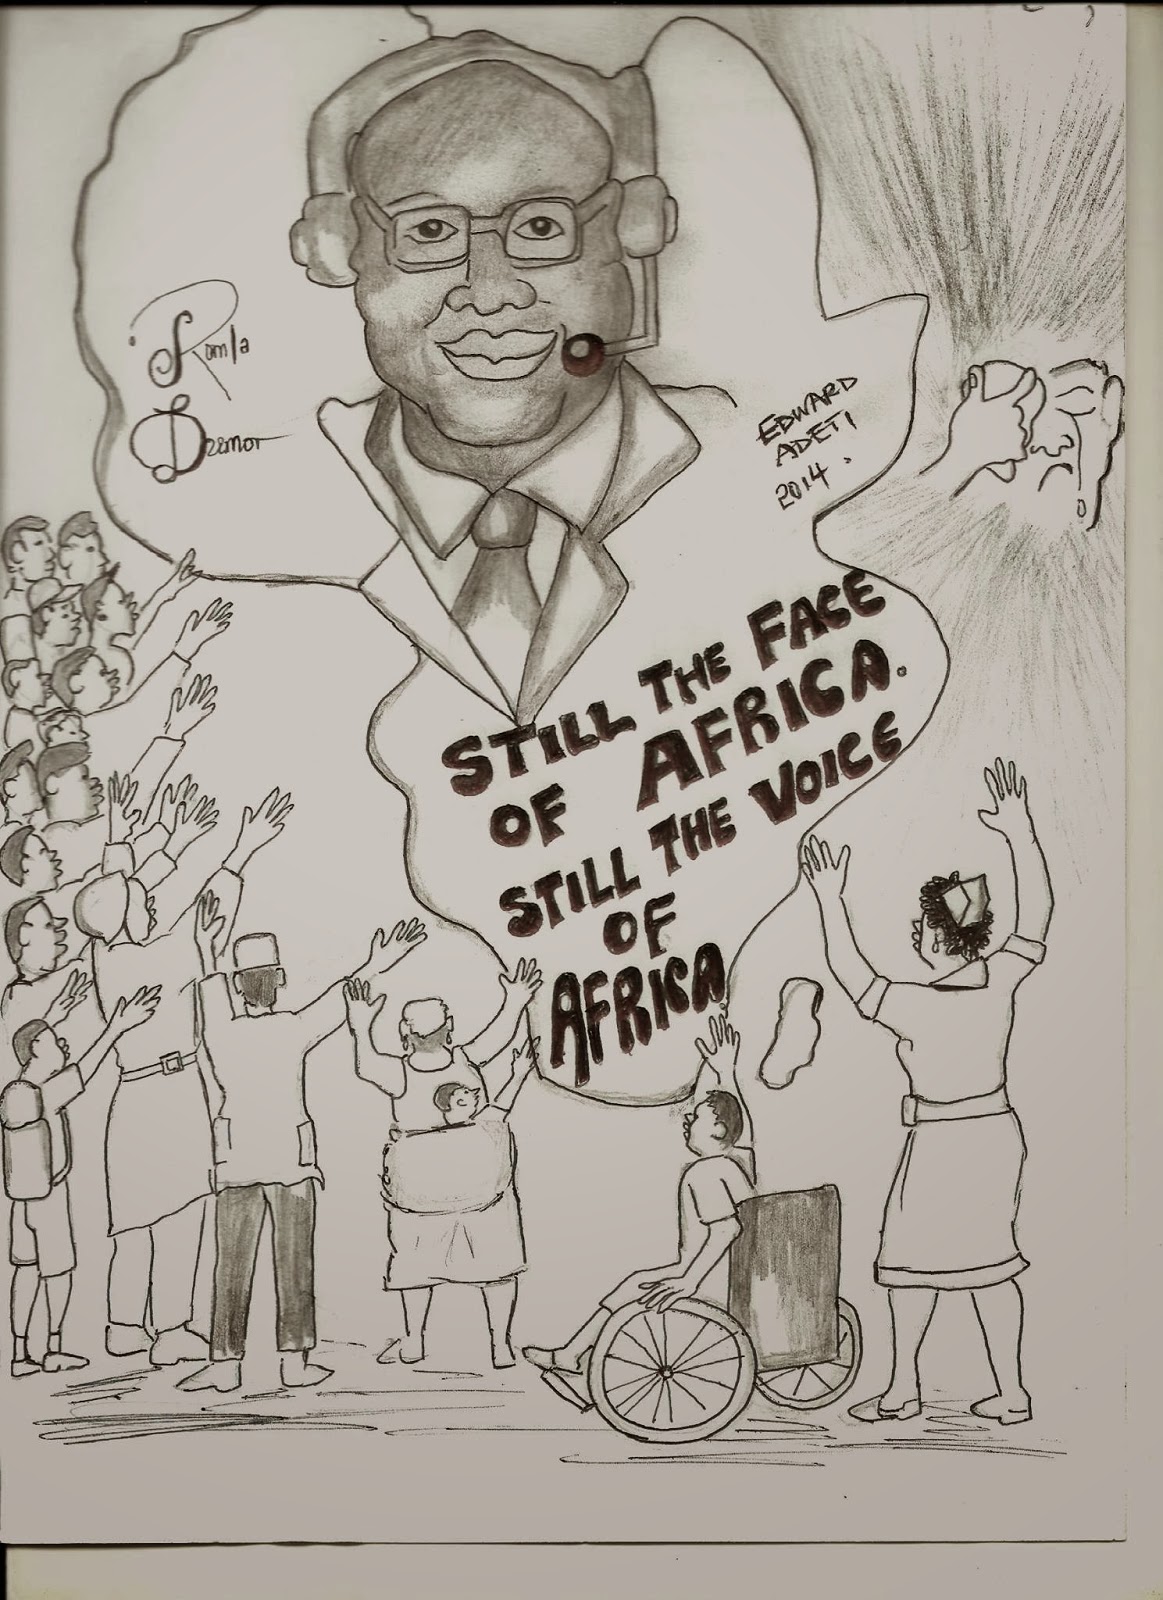 Komla
Dumor
EDWARD
ADETI
2014.
STILL THE FACE
OF AFRICA.
STILL THE VOICE
OF
AFRICA